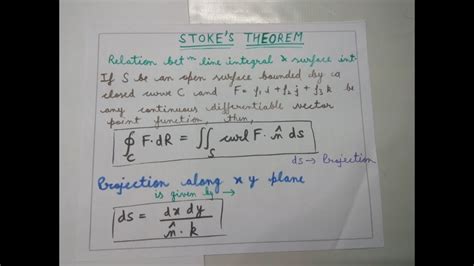 STOKE'S THEOREM
Relation betⁿ line integral & surface int
If S be an open surface bounded by a
closed curve C and F = f₁i + f₂j + f₃k be
any continuous differentiable vector
point function then,
∮_C F·dR = ∬_S curl F· n̂ ds
ds → Projection
Projection along x y plane
is given by →
ds = dx dy / n̂ · k